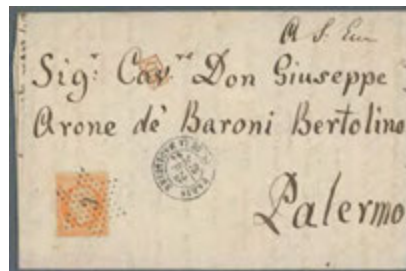 A S. Em
Sig.r Cav.re Don Giuseppe
Arone dè Baroni Bertolino
PARIS
Palermo